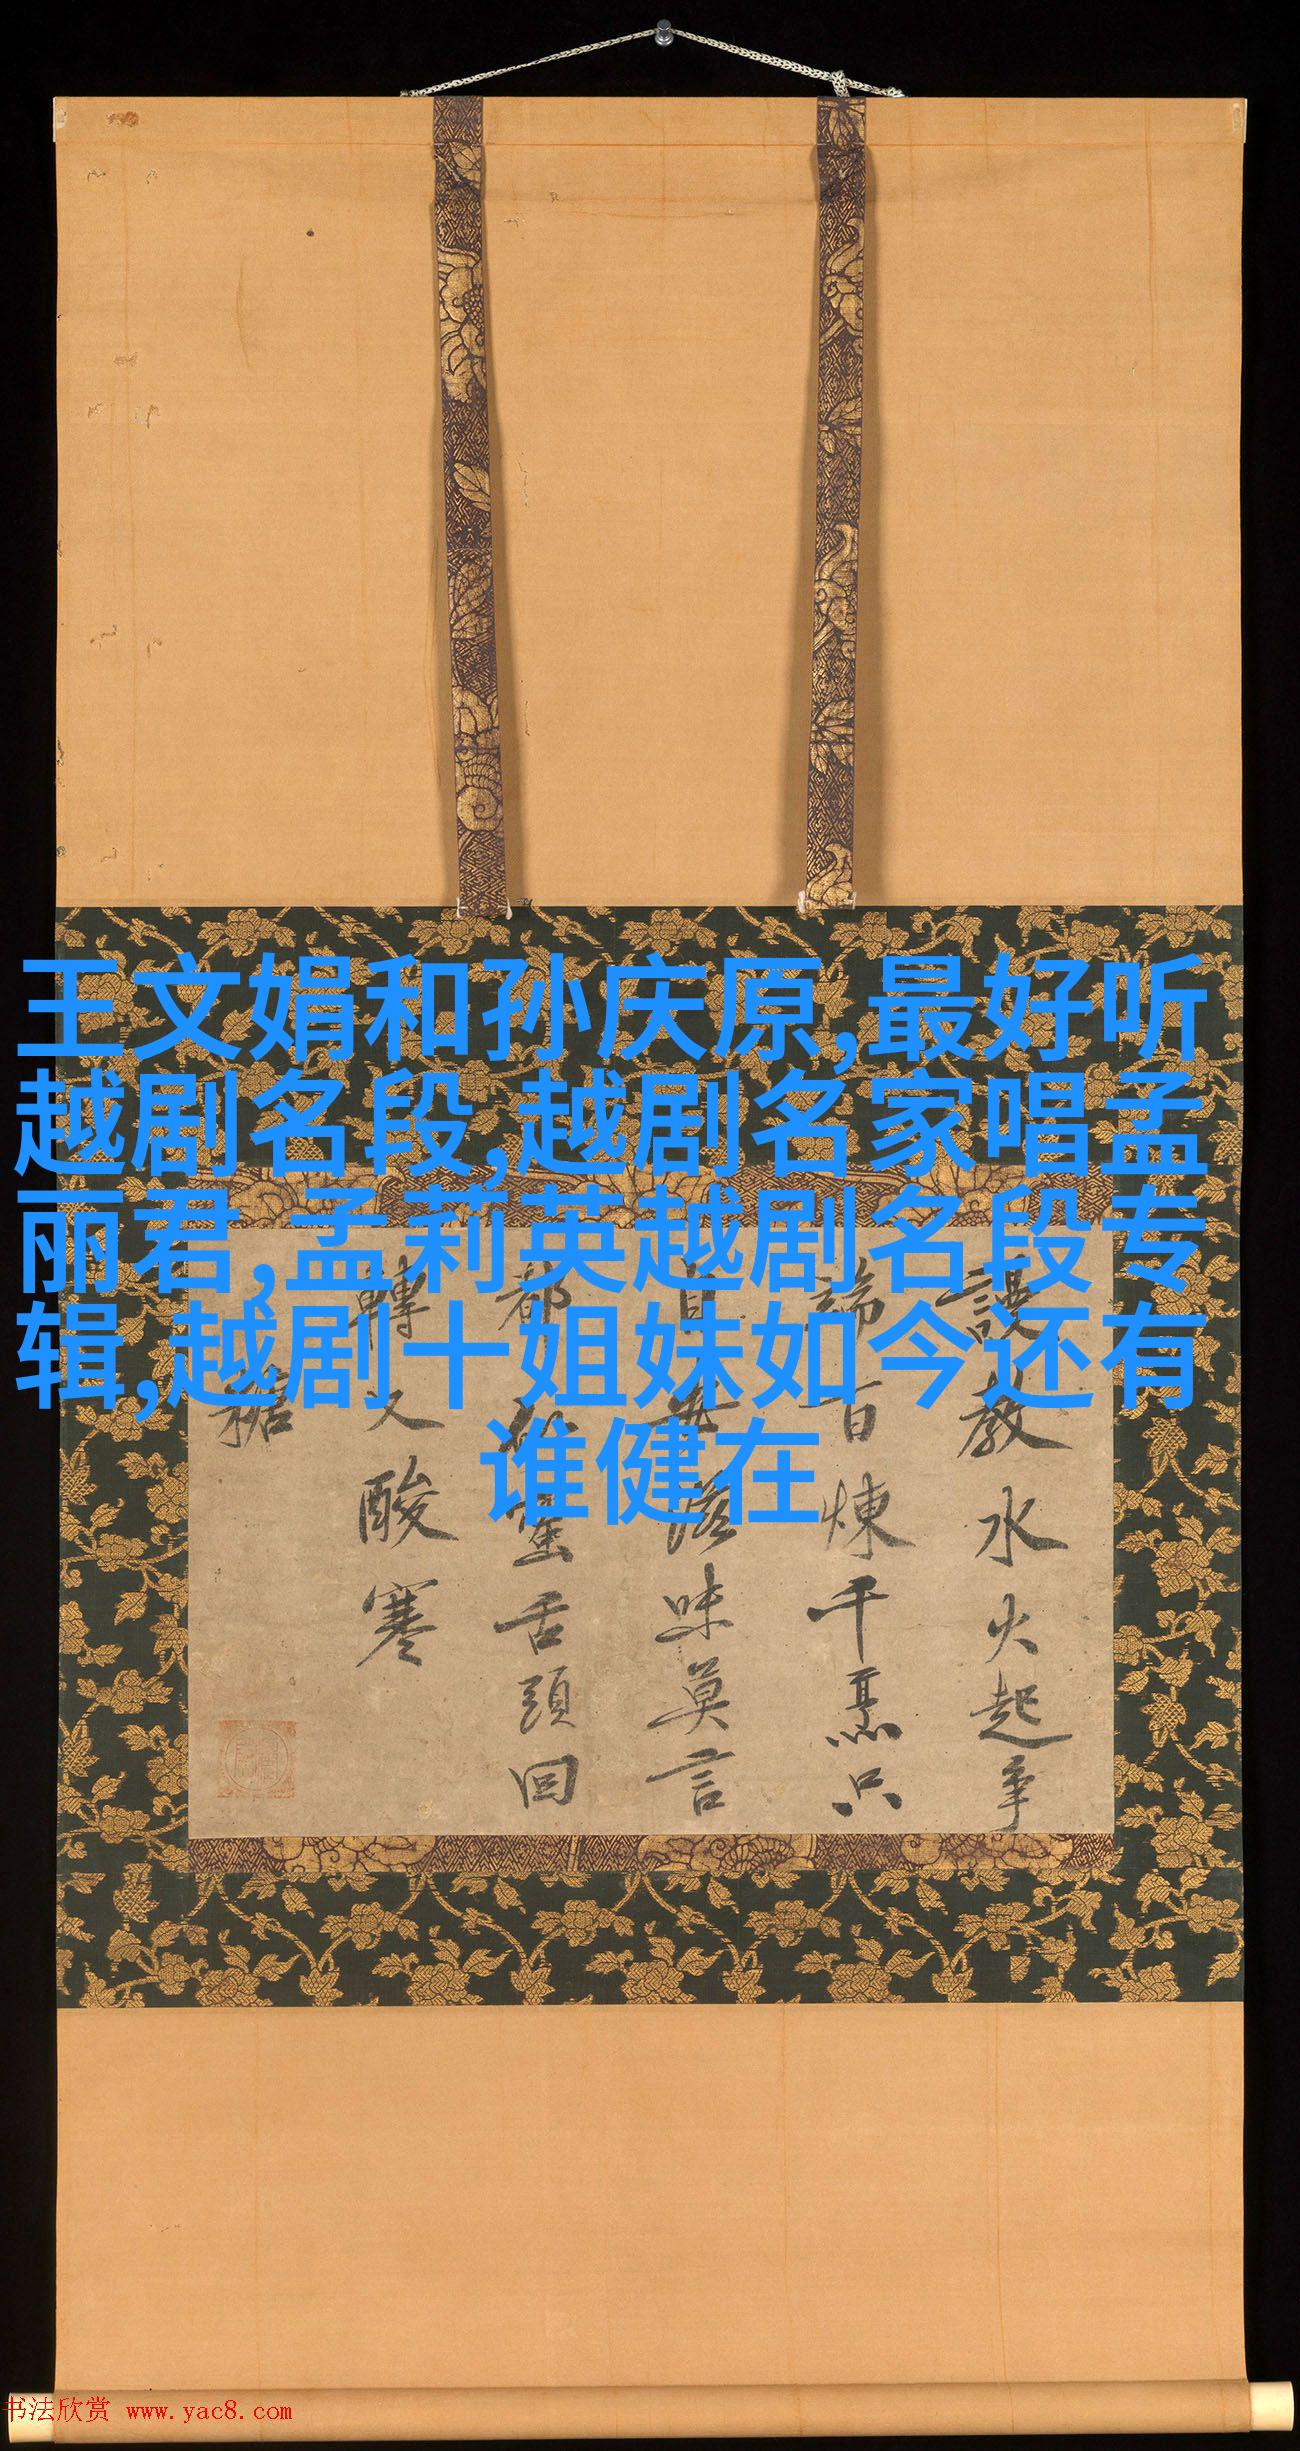 王文娟和孙庆原,最好听
越剧名段,越剧名家唱孟
丽君,孟莉英越剧名段专
辑,越剧十姐妹如今还有
谁健在
謾教水火起爭
端百煉千烹只
自滋味莫言
都蜜舌頭回
轉又酸寒
书法欣赏 www.yac8.com